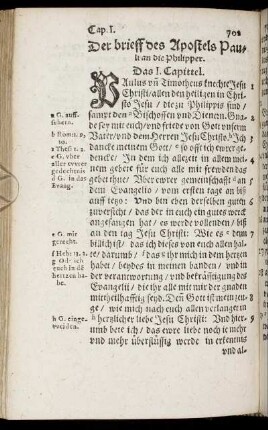 Cap. I.
702
Der brieff des Apostels Pau-
li an die Philipper.
Das I. Capittel.
PAulus uñ Timotheus knechte Jesu
Christi/ allen den heiligen in Chri-
sto Jesu / die zu Philippis sind/
sampt den Bischoffen und Dienern. Gna-
de sey mit euch/ und friede von Gott unserm
Vater/ und dem Herren Jesu Christo. Ich
dancke meinem Gott/ so offt ich ewer ge-
dencke/ In dem ich allezeit in allem mei-
nem gebete für euch alle mit frewden das
gebet thue/ Uber ewer gemeinschafft an
dem Evangelio / vom ersten tage an biß
auff itzo: Und bin eben derselben guten
zuversicht/ das der in euch ein gutes werck
angefangen hat / es werde vollenden / biß
an den tag Jesu Christi: Wie es dem
billich ist/ das ich dieses von euch allen hal-
te/ darumb/ das ihr mich in dem hertzen
habet / beydes in meinen banden / und in
der verantwortung / und bekräfftigung des
Evangelii/ die ihr alle mit mir der gnaden
mittheilhafftig seyd. Deñ Gott ist mein zeu-
ge / wie mich nach euch allen verlanget in
hertzlicher liebe Jesu Christi: Und hier-
umb bete ich / das ewre liebe noch je mehr
und mehr überflüssig werde in erkentnis
und al-
a G. auff-
sehern.
b Rom. 1.
2 Thess. 1.
c G. uber
aller ewrer
gedechtnis
d G. in das
Evang.
e G. mir
gerecht.
g Od. ich
euch in dē
hertzen ha-
be.
h G. einge-
weiden.